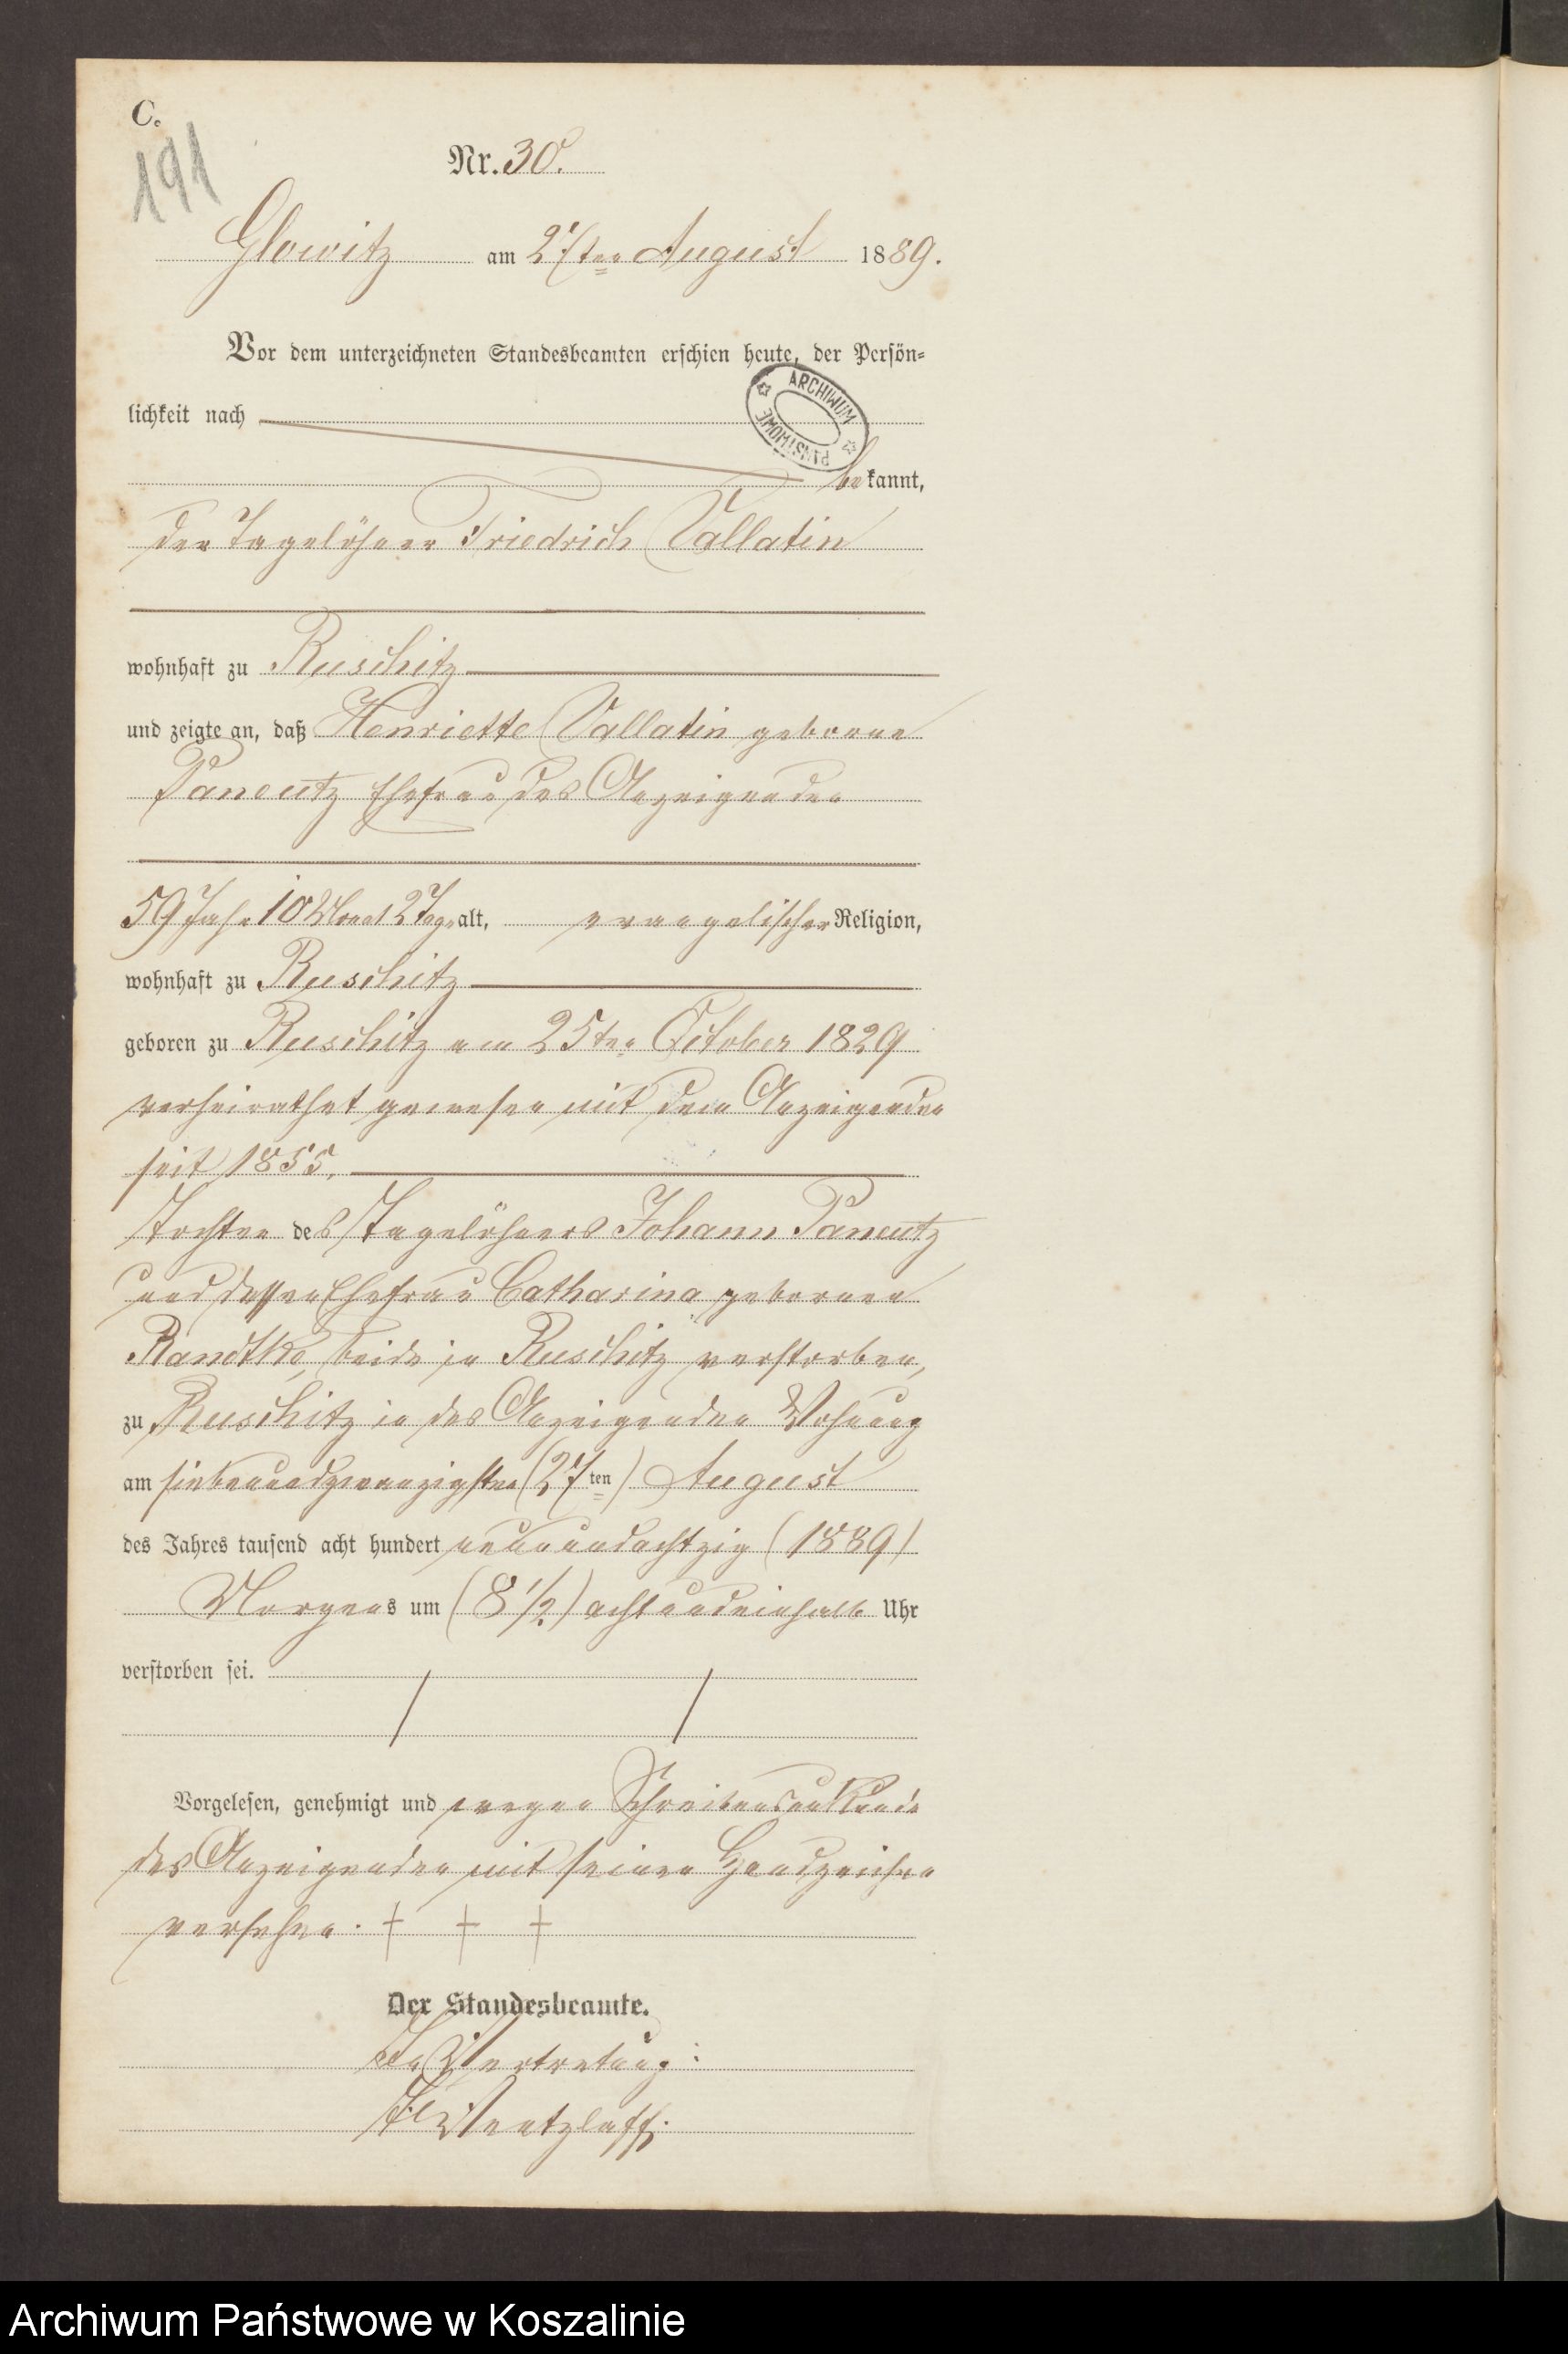 C.
191
Nr. 30.
Glowitz am 27ten August 1889.
Vor dem unterzeichneten Standesbeamten erschien heute, der Persön-
lichkeit nach
bekannt,
der Tagelöhner Friedrich Vallatin
ARCHIWUM PAŃSTWOWE
wohnhaft zu Ruschitz
und zeigte an, daß Henriette Vallatin geborne
Ehefrau des Anzeigenden
59 Jahr 10 Monat 2 Tage alt, evangelischer Religion,
wohnhaft zu Ruschitz
geboren zu Ruschitz am 25ten October 1829
verheirathet gewesen mit dem Anzeigenden
seit 1855.
Tochter des Tagelöhners Johann
und dessen Ehefrau Catharina gebornen
Randtke, beide in Ruschitz verstorben,
zu Ruschitz in des Anzeigenden Wohnung
am siebenundzwanzigsten (27ten) August
des Jahres tausend acht hundert neunundachtzig (1889)
Morgens um (8 1/2) achtundeinhalb Uhr
verstorben sei.
Vorgelesen, genehmigt und wegen Schreibensunkunde
des Anzeigenden mit seinen Handzeichen
versehen. † † †
Der Standesbeamte.
In Vertretung:
Wentzlaff.
Archiwum Państwowe w Koszalinie